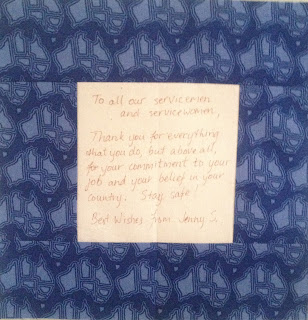 To all our servicemen
and servicewomen,
Thank you for everything
that you do, but above all,
for your commitment to your
job and your belief in your
country. Stay safe!
Best Wishes from Jenny S.